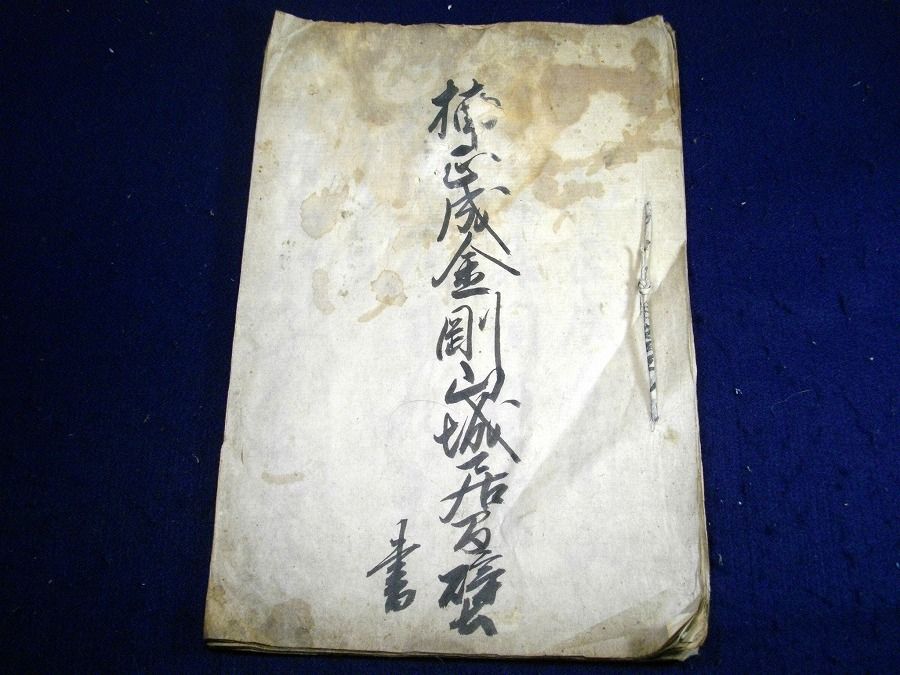 楠正成金剛山城居間壁
書